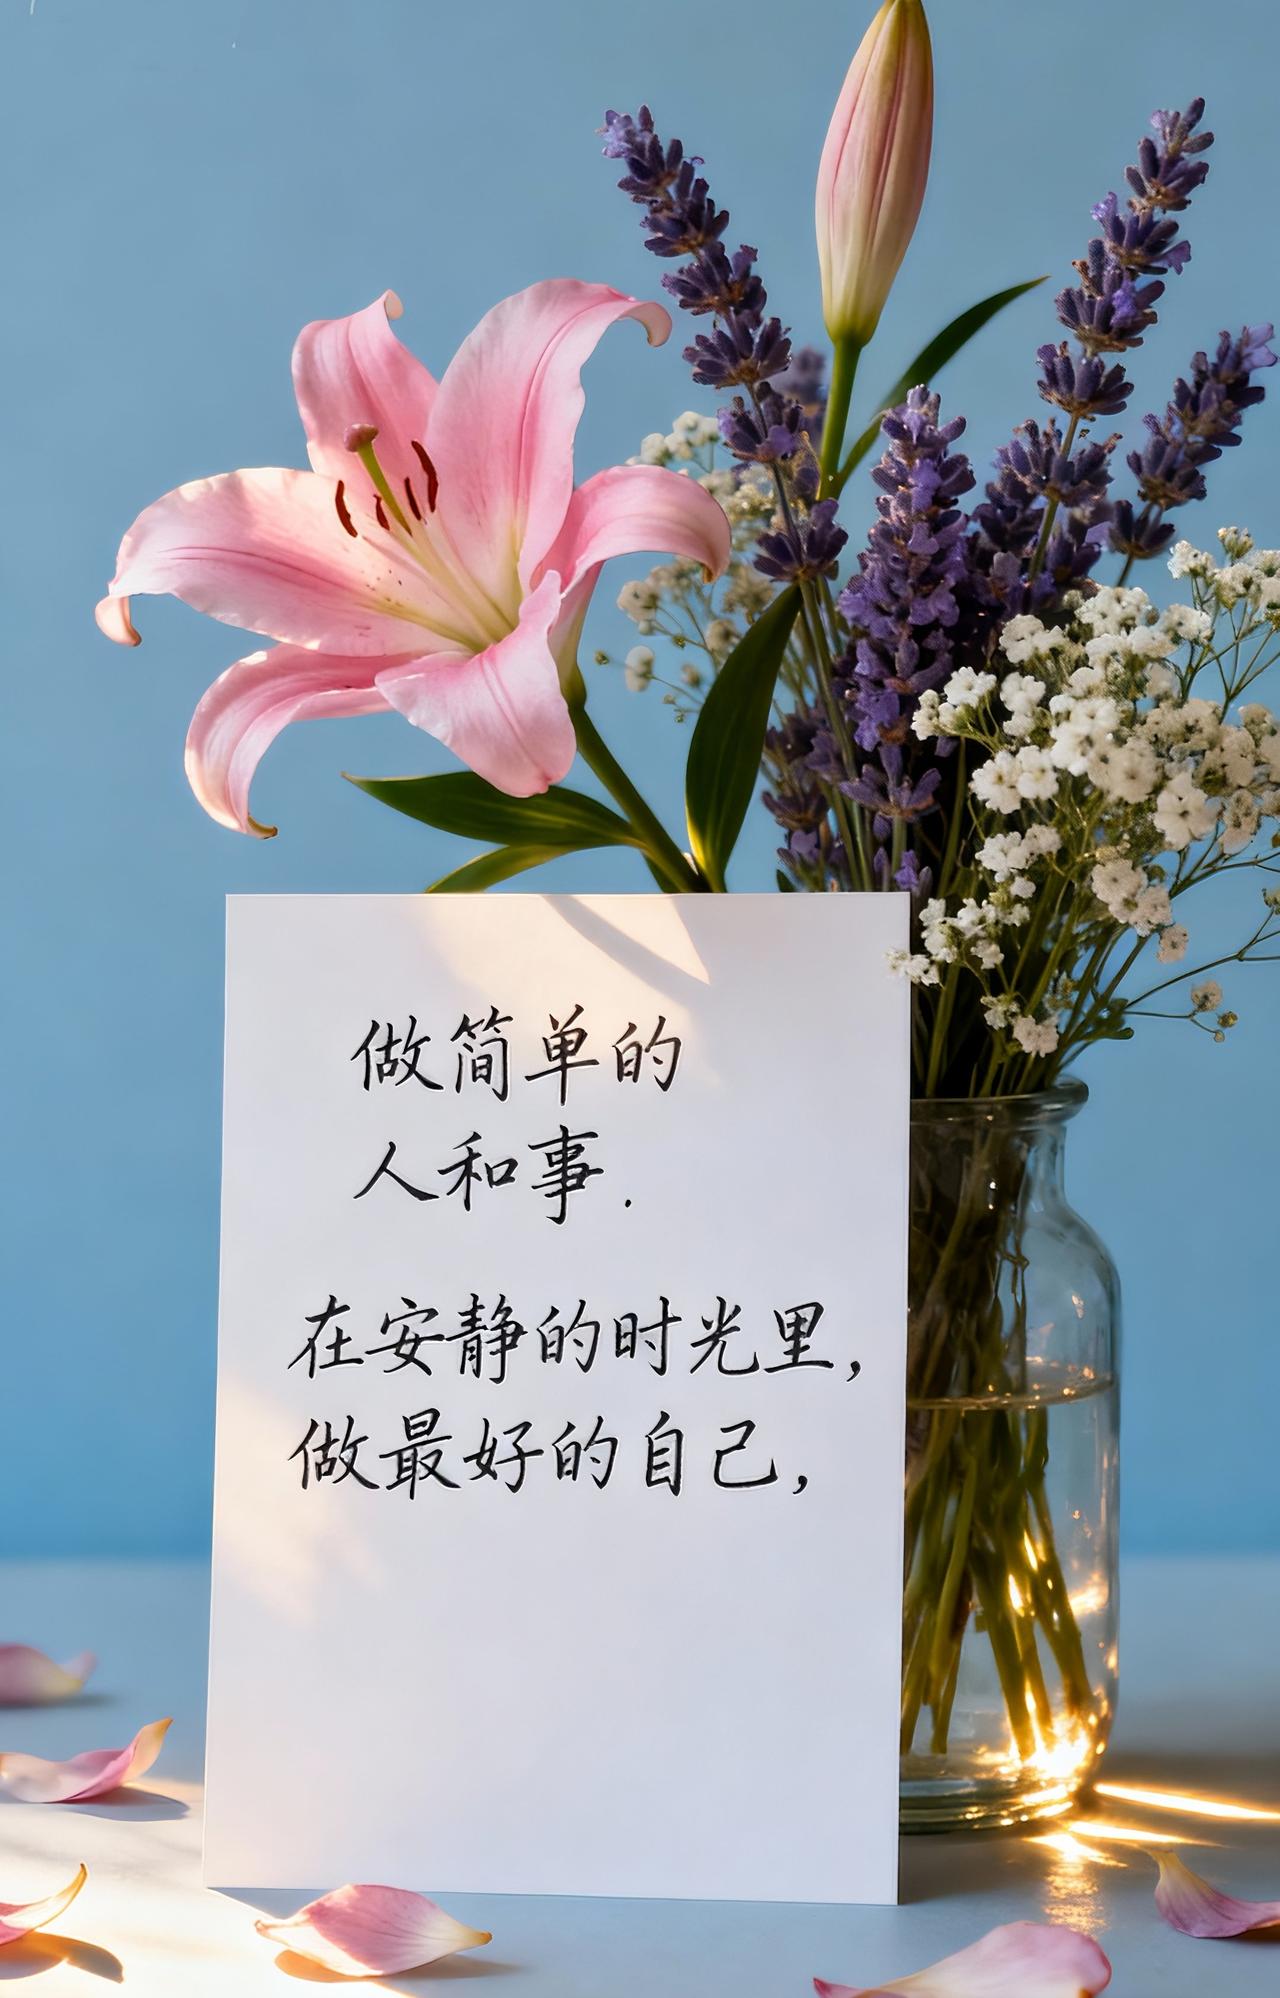 做简单的
人和事.
在安静的时光里,
做最好的自己,